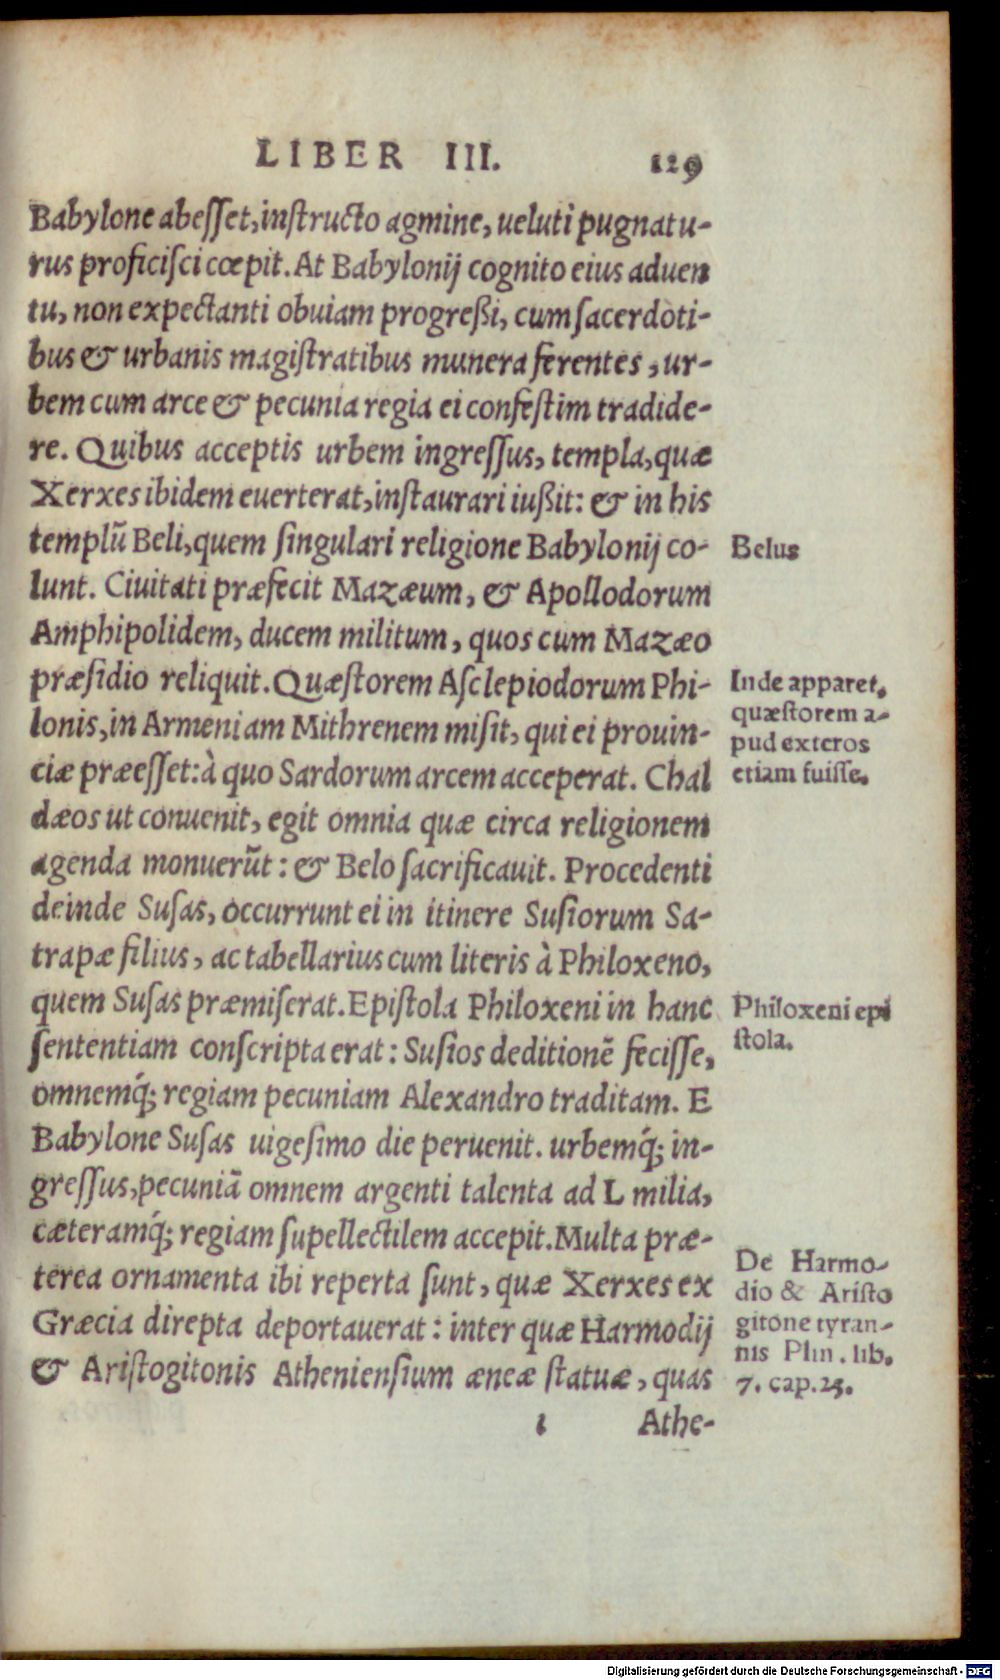 LIBER III. 129
Babylone abeſſet, inſtructo agmine, ueluti pugnatu-
rus proficiſci cœpit. At Babylonij cognito eius aduen
tu, non expectanti obuiam progreßi, cum ſacerdoti-
bus & urbanis magiſtratibus munera ferentes, ur-
bem cum arce & pecunia regia ei confeſtim tradide-
re. Quibus acceptis urbem ingreſſus, templa, quæ
Xerxes ibidem euerterat, inſtaurari iußit: & in his
templū Beli, quem ſingulari religione Babylonij co-
lunt. Ciuitati præfecit Mazæum, & Apollodorum
Amphipolidem, ducem militum, quos cum Mazæo
præſidio reliquit. Quæſtorem Aſclepiodorum Phi-
lonis, in Armeniam Mithrenem miſit, qui ei prouin-
ciæ præeſſet: à quo Sardorum arcem acceperat. Chal
dæos ut conuenit, egit omnia quæ circa religionem
agenda monuerūt: & Belo ſacrificauit. Procedenti
deinde Suſas, occurrunt ei in itinere Suſiorum Sa-
trapæ filius, ac tabellarius cum literis à Philoxeno,
quem Suſas præmiſerat. Epiſtola Philoxeni in hanc
ſententiam conſcripta erat: Suſios deditionē feciſſe,
omnemq́; regiam pecuniam Alexandro traditam. E
Babylone Suſas uigeſimo die peruenit. urbemq́; in-
greſſus, pecuniā omnem argenti talenta ad L milia,
cæteramq́; regiam ſupellectilem accepit. Multa præ-
terea ornamenta ibi reperta ſunt, quæ Xerxes ex
Græcia direpta deportauerat: inter quæ Harmodij
& Ariſtogitonis Athenienſium æneæ ſtatuæ, quas
i Athe-
Belus
Inde apparet,
quæſtorem a-
pud exteros
etiam fuiſſe.
Philoxeni epi
ſtola.
De Harmo-
dio & Ariſto
gitone tyran-
nis Plin. lib.
7. cap. 23.
Digitalisierung gefördert durch die Deutsche Forschungsgemeinschaft - DFG